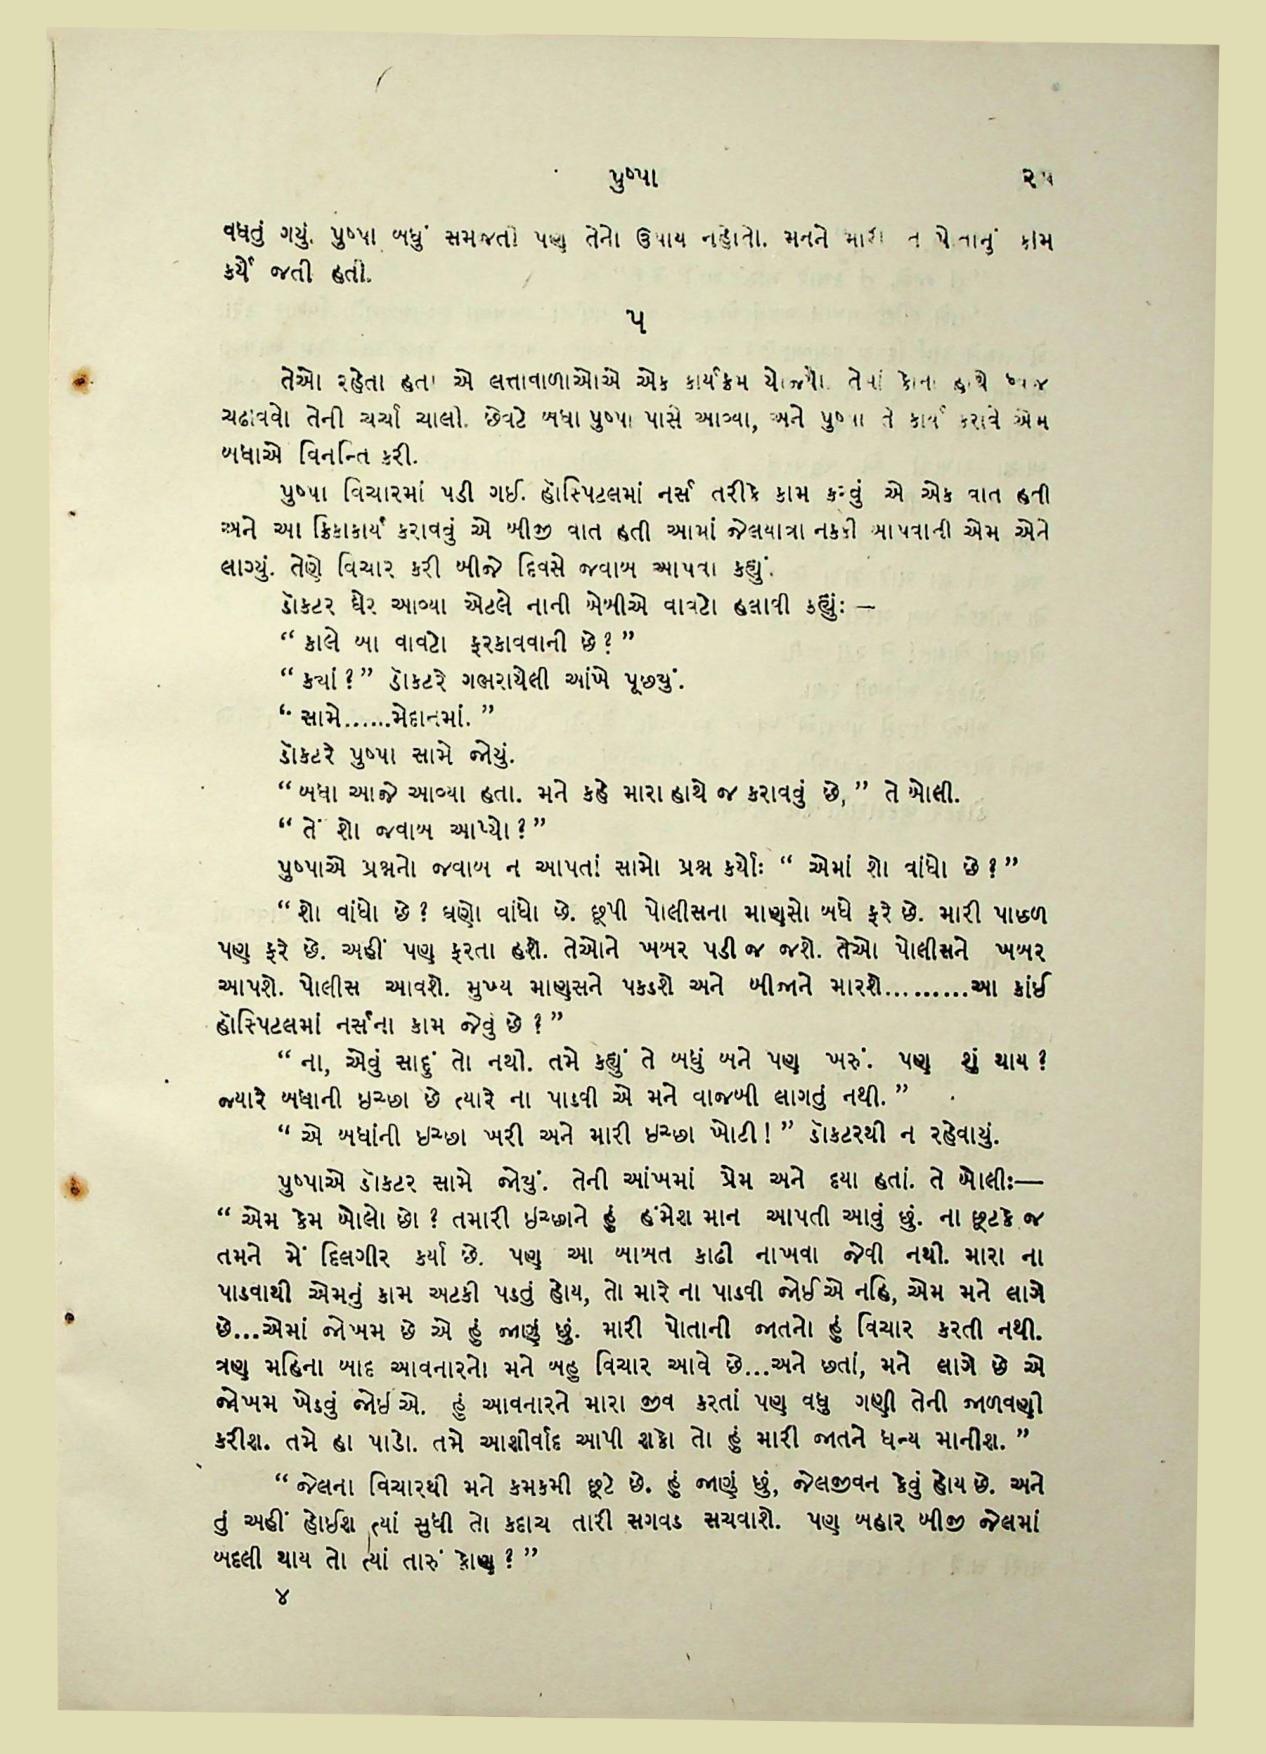 પુષ્પા ૨૫
વધતું ગયું. પુષ્પા બધું સમજતી પણ તેનો ઉપાય નહોતો. મનને પોતાનું કામ
કર્યે જતી હતી.
૫
તેઓ રહેતા હતા એ લત્તાવાળાઓએ એક કાર્યક્રમ યોજ્યો. તેમાં કોના હાથે ધ્વજ
ચઢાવવો તેની ચર્ચા ચાલી. છેવટે બધા પુષ્પા પાસે આવ્યા, અને પુષ્પા તે કાર્ય કરાવે એમ
બધાએ વિનન્તિ કરી.
પુષ્પા વિચારમાં પડી ગઈ. હૉસ્પિટલમાં નર્સ તરીકે કામ કરવું એ એક વાત હતી
અને આ ક્રિકાકાર્ય કરાવવું એ બીજી વાત હતી આમાં જેલયાત્રા નક્કી આપવાની એમ એને
લાગ્યું. તેણે વિચાર કરી બીજે દિવસે જવાબ આપવા કહ્યું.
ડૉક્ટર ઘેર આવ્યા એટલે નાની બેબીએ વાવટો હલાવી કહ્યુંઃ —
“ કાલે બા વાવટો ફરકાવવાની છે ? ”
“ ક્યાં ? ” ડૉકટરે ગભરાયેલી આંખે પૂછ્યું.
“ સામે......મેદાનમાં. ”
ડૉકટરે પુષ્પા સામે જોયું.
“ બધા આજે આવ્યા હતા. મને કહે મારા હાથે જ કરાવવું છે, ” તે બોલી.
“ તેં શો જવાબ આપ્યો ? ”
પુષ્પાએ પ્રશ્નનો જવાબ ન આપતાં સામો પ્રશ્ન કર્યોઃ “ એમાં શો વાંધો છે ? ”
“ શો વાંધો છે ? ઘણો વાંધો છે. છૂપી પોલીસના માણસો બધે ફરે છે. મારી પાછળ
પણ ફરે છે. અહીં પણ ફરતા હશે. તેઓને ખબર પડી જ જશે. તેઓ પોલીસને ખબર
આપશે. પોલીસ આવશે. મુખ્ય માણસને પકડશે અને બીજાને મારશે.........આ કાંઈ
હૉસ્પિટલમાં નર્સના કામ જેવું છે ? ”
“ ના, એવું સાદું તો નથી. તમે કહ્યું તે બધું બને પણ ખરું. પણ શું થાય ?
જ્યારે બધાની ઇચ્છા છે ત્યારે ના પાડવી એ મને વાજબી લાગતું નથી. ”
“ એ બધાંની ઇચ્છા ખરી અને મારી ઇચ્છા ખોટી ! ” ડૉકટરથી ન રહેવાયું.
પુષ્પાએ ડૉકટર સામે જોયું. તેની આંખમાં પ્રેમ અને દયા હતાં. તે બોલીઃ—
“ એમ કેમ બોલો છો ? તમારી ઇચ્છાને હું હંમેશ માન આપતી આવું છું. ના છૂટકે જ
તમને મેં દિલગીર કર્યા છે. પણ આ બાબત કાઢી નાખવા જેવી નથી. મારા ના
પાડવાથી એમનું કામ અટકી પડતું હોય, તો મારે ના પાડવી જોઈએ નહિ, એમ મને લાગે
છે...એમાં જોખમ છે એ હું જાણું છું. મારી પોતાની જાતનો હું વિચાર કરતી નથી.
ત્રણ મહિના બાદ આવનારનો મને બહુ વિચાર આવે છે...અને છતાં, મને લાગે છે એ
જોખમ ખેડવું જોઈએ. હું આવનારને મારા જીવ કરતાં પણ વધુ ગણી તેની જાળવણી
કરીશ. તમે હા પાડો. તમે આશીર્વાદ આપી શકો તો હું મારી જાતને ધન્ય માનીશ. ”
“ જેલના વિચારથી મને કમકમી છૂટે છે. હું જાણું છું, જેલજીવન કેવું હોય છે. અને
તું અહીં હોઈશ ત્યાં સુધી તો કદાચ તારી સગવડ સચવાશે. પણ બહાર બીજી જેલમાં
બદલી થાય તો ત્યાં તારું કોણ ? ”
૪